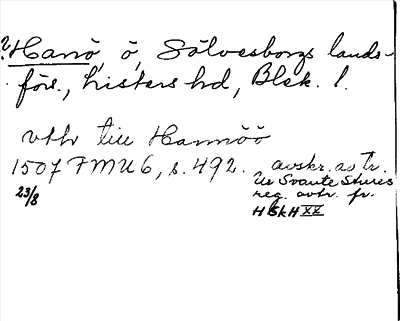 ? Hanö, ö, Sölvesborgs lands-
förs., Listers hd, Blek. l.
vthr till Hannöö
1507 FMU 6, s. 492. avskr. av tr.
23/8
ur Svante Stures
reg. avtr. fr.
HSkH XX